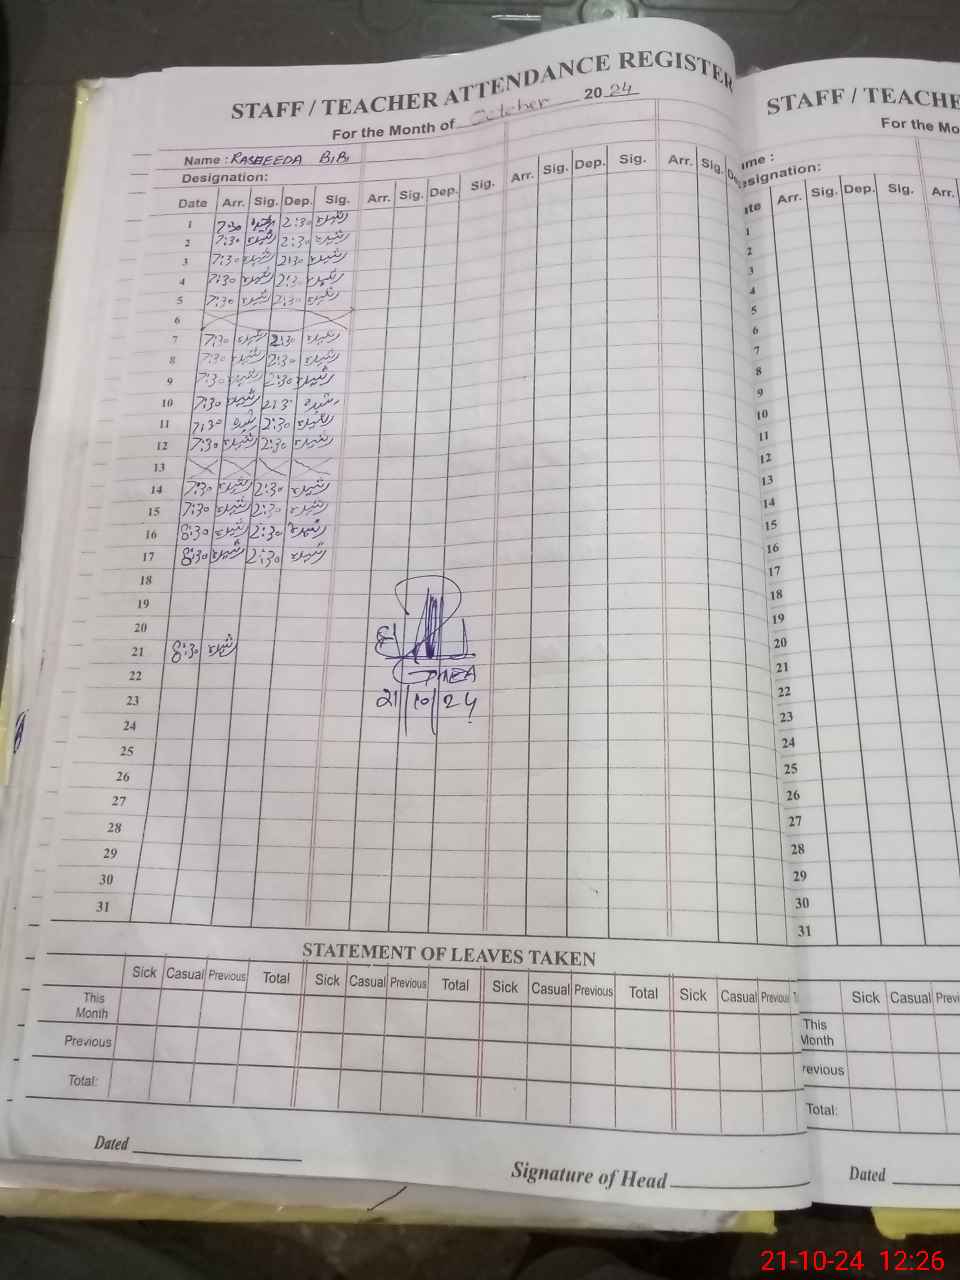 STAFF / TEACHER ATTENDANCE REGISTER
For the Month of October 20 24
Name : RASHEEDA BiBi
Designation:
Date Arr. Sig. Dep. Sig. Arr. Sig. Dep. Sig. Arr. Sig. Dep. Sig. Arr. Sig.
1 7:30 رشیدہ 2:30 رشیدہ
2 7:30 رشیدہ 2:30 رشیدہ
3 7:30 رشیدہ 2:30 رشیدہ
4 7:30 رشیدہ 2:30 رشیدہ
5 7:30 رشیدہ 2:30 رشیدہ
6
7 7:30 رشیدہ 2:30 رشیدہ
8 7:30 رشیدہ 2:30 رشیدہ
9 7:30 رشیدہ 2:30 رشیدہ
10 7:30 رشیدہ 2:3 رشیدہ
11 7:30 رشیدہ 2:30 رشیدہ
12 7:30 رشیدہ 2:30 رشیدہ
13
14 7:30 رشیدہ 2:30 رشیدہ
15 7:30 رشیدہ 2:30 رشیدہ
16 8:30 رشیدہ 2:30 رشیدہ
17 8:30 رشیدہ 2:30 رشیدہ
18
19
20
21 8:30 رشیدہ
22
23 21/10/24
24
25
26
27
28
29
30
31
STATEMENT OF LEAVES TAKEN
Sick Casual Previous Total Sick Casual Previous Total Sick Casual Previous Total Sick Casual Previou
This Month
Previous
Total:
Dated
Signature of Head
STAFF / TEACHE
For the Mo
ame :
esignation:
ate Arr. Sig. Dep. Sig. Arr.
1
2
3
4
5
6
7
8
9
10
11
12
13
14
15
16
17
18
19
20
21
22
23
24
25
26
27
28
29
30
31
Sick Casual Previ
This Month
revious
Total:
Dated
21-10-24 12:26